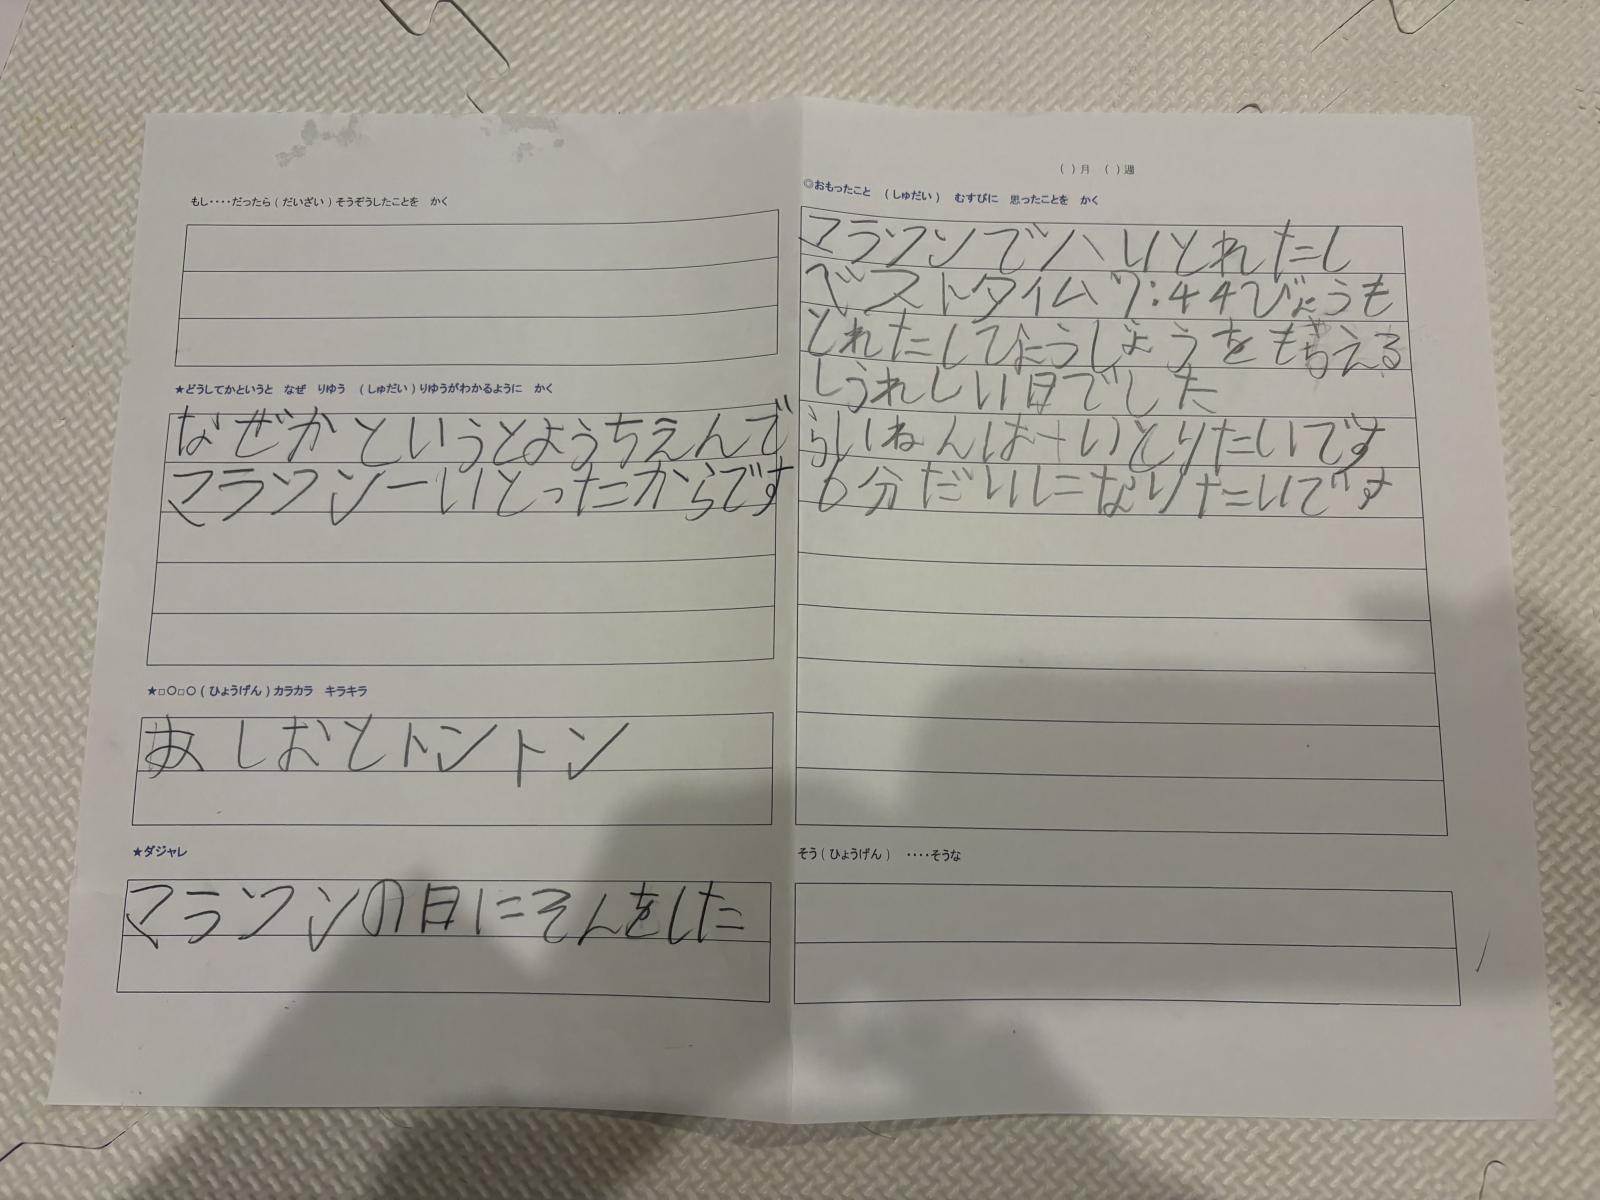 もし････だったら(だいざい)そうぞうしたことを　かく
★どうしてかというと　なぜ　りゆう　(しゅだい)りゆうがわかるように　かく
なぜかというとようちえんで
マラソン一いとったからです
★□○□○(ひょうげん)カラカラ　キラキラ
あしおとトントン
★ダジャレ
マラソンの日にそんをした
( )月　( )週
◎おもったこと　(しゅだい)　むすびに　思ったことを　かく
マラソンで八いとれたし
ベストタイム7:44びょうも
とれたしひょうしょうをもらえる
しうれしい日でした
らいねんは十いとりたいです
6分だいになりたいです
そう(ひょうげん)　････そうな